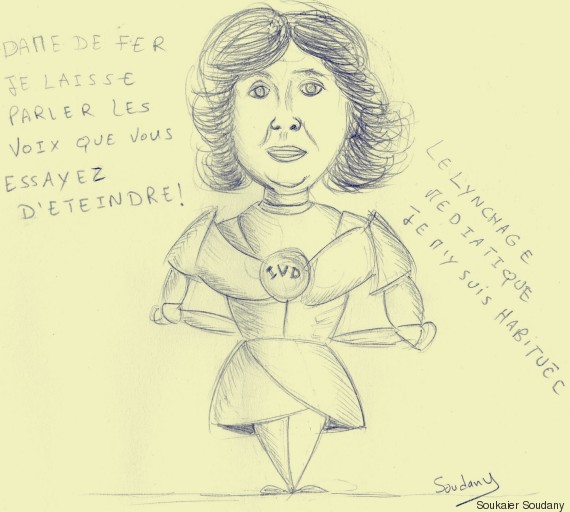 DAME DE FER
JE LAISSE
PARLER LES
VOIX QUE VOUS
ESSAYEZ
D'ETEINDRE!
LE LYNCHAGE
MEDIATIQUE
JE N'Y SUIS HABITUÉE
IVD
Soudany
Soukaier Soudany